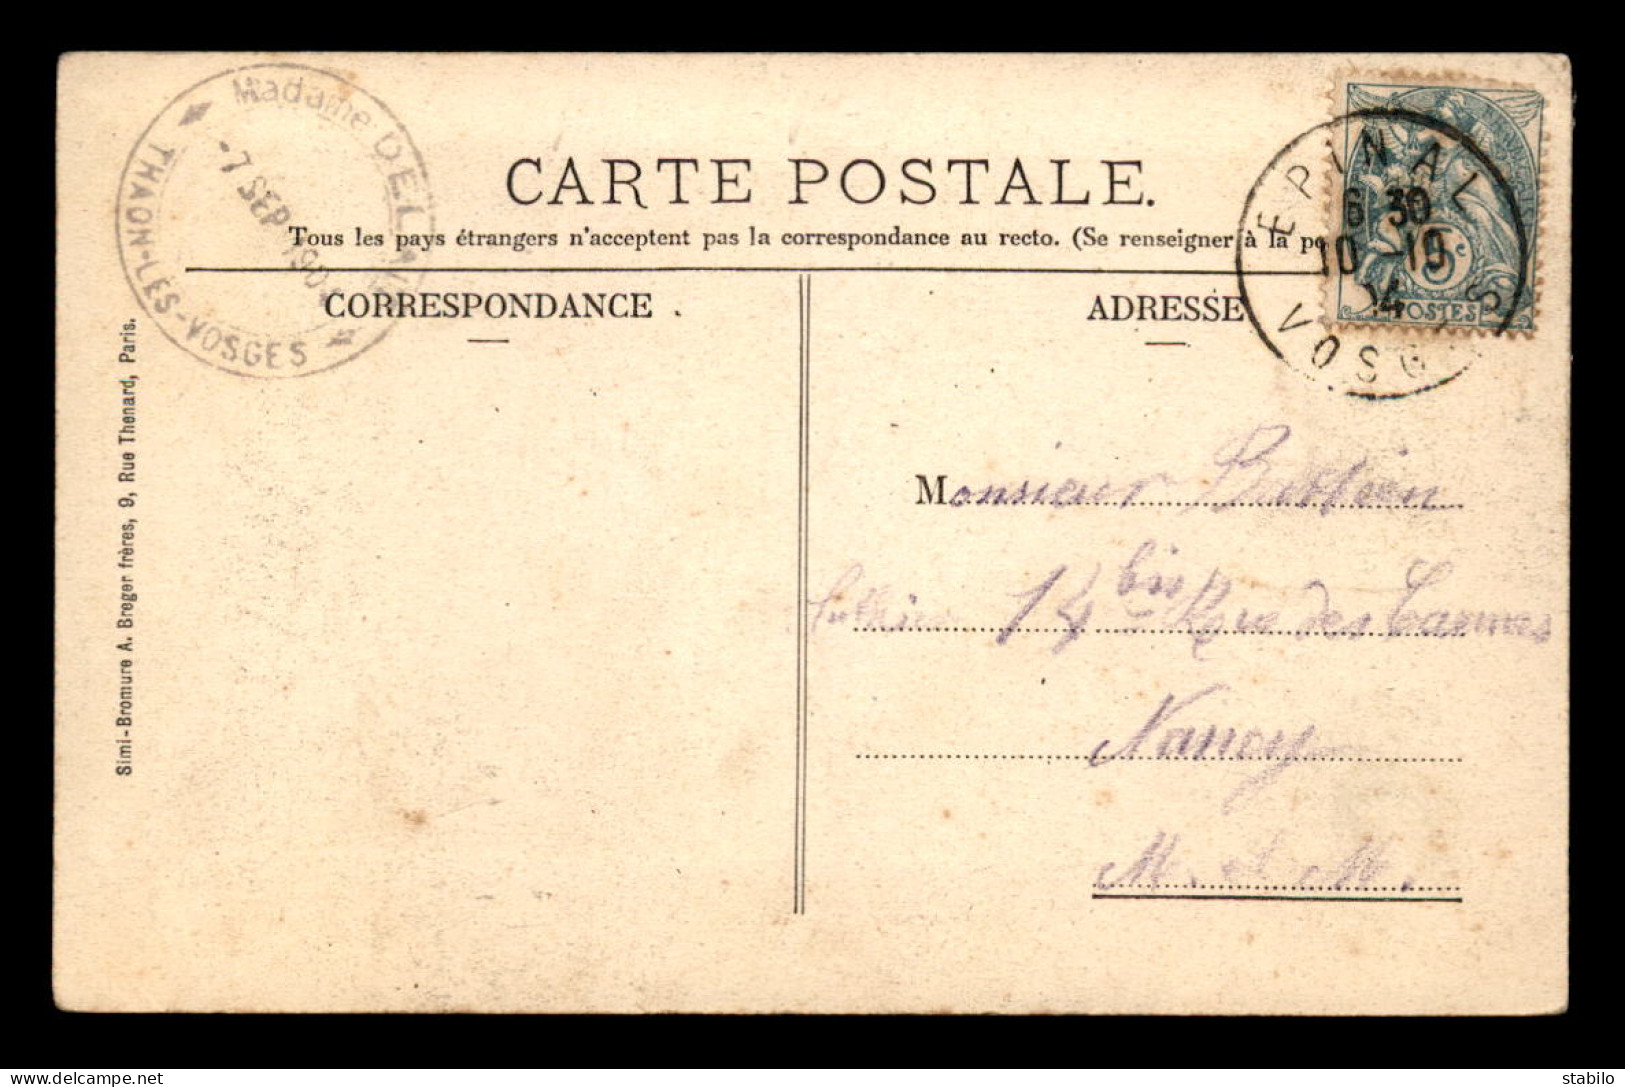 Madame
THAON-LES-VOSGES
-7 SEP 190
CARTE POSTALE.
Tous les pays étrangers n'acceptent pas la correspondance au recto. (Se renseigner à la po
CORRESPONDANCE
ADRESSE
EPINAL
6 30
10 -10
14
VOSGES
5c
POSTES
Simi-Bromure A. Breger frères, 9, Rue Thenard, Paris.
Monsieur
14 bis Rue des Carmes
Nancy
M. & M.
stabilo